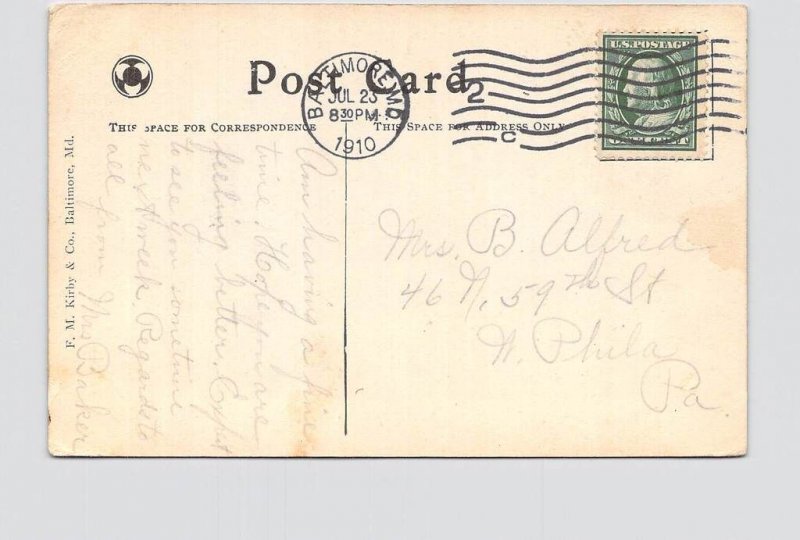 Post Card
BALTIMORE, MD.
JUL 23
8 30 PM
1910
2
C
U.S. POSTAGE
THIS SPACE FOR CORRESPONDENCE
THIS SPACE FOR ADDRESS ONLY
F. M. Kirby & Co., Baltimore, Md.
Am having a fine
time. Hope you are
feeling better. Expt
to see you sometime
next week. Regards to
all from Mrs Baker
Mrs. B. Alfred
46 N. 59th St
W. Phila
Pa.